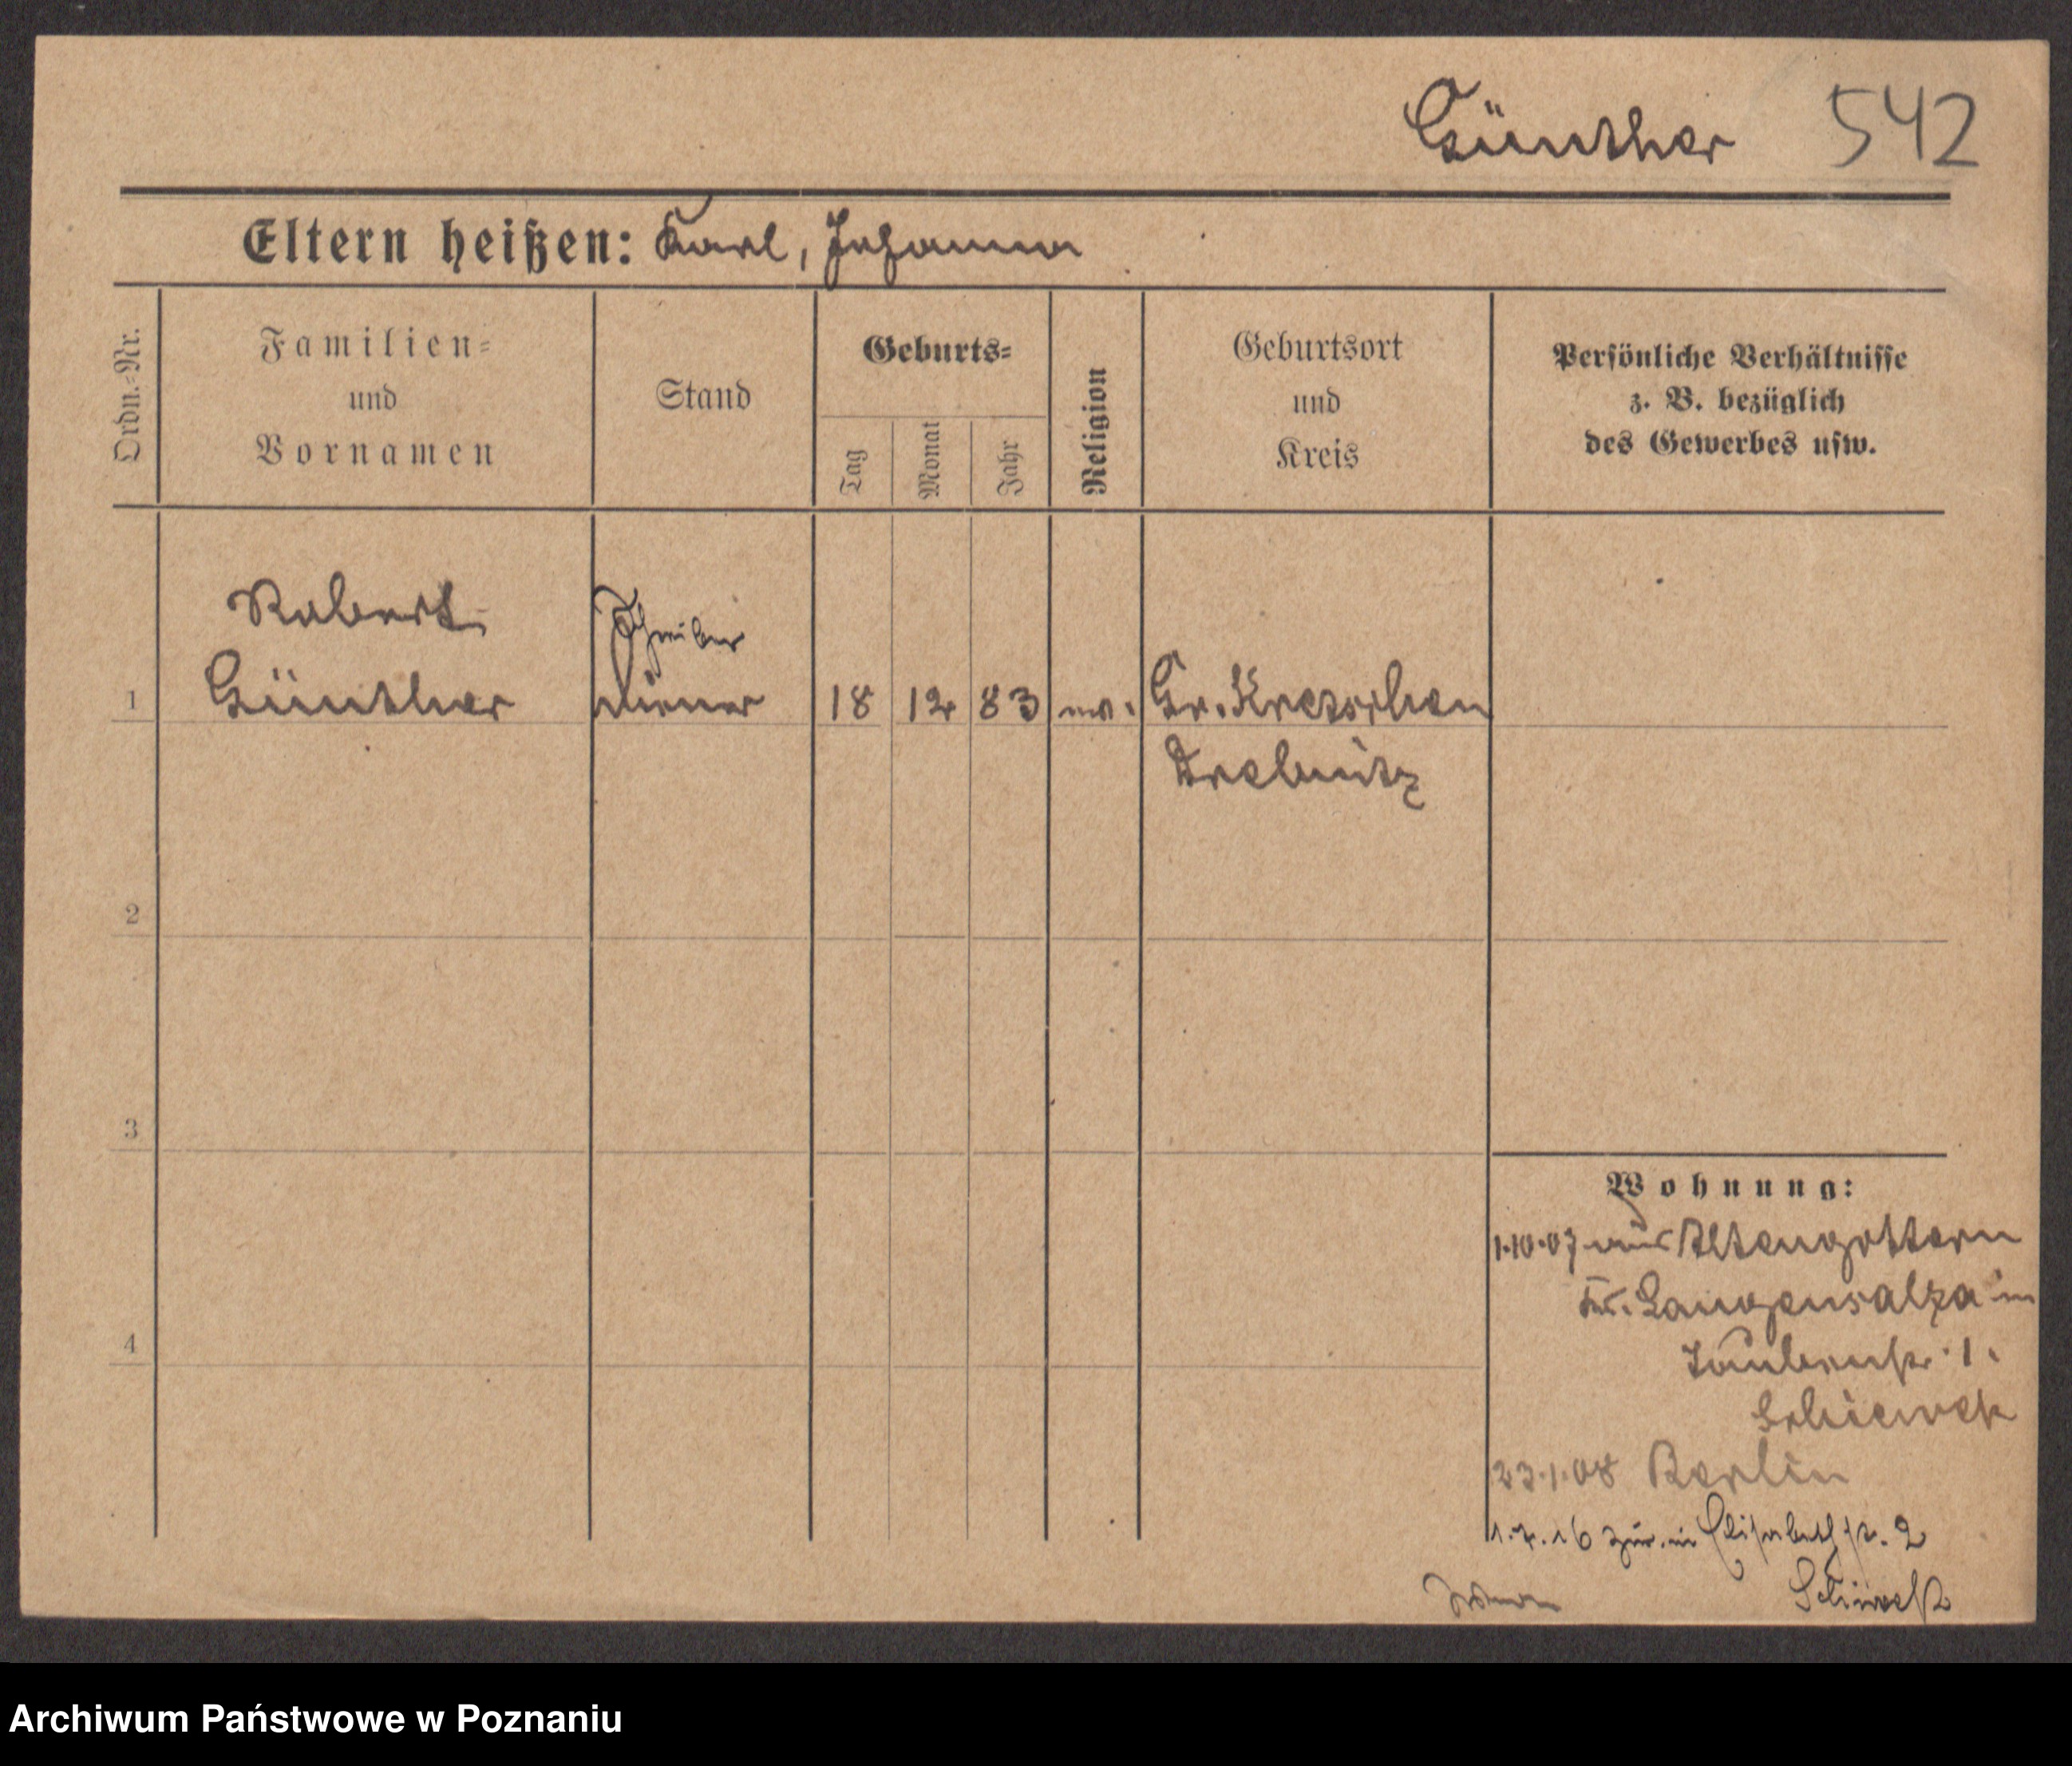 Günther 542
Eltern heißen: Karl, Johanna
Ordn.-Nr.
Familien-
und
Vornamen
Stand
Geburts-
Tag
Monat
Jahr
Religion
Geburtsort
und
Kreis
Persönliche Verhältnisse
z. B. bezüglich
des Gewerbes usw.
Robert
Günther
Schreiber
Diener
1
18 12 83 ev. Gr.
Trebnitz
2
3
4
Wohnung:
1.10.07 aus Altengottern
Kr. Langensalza in
Taubenstr. 1.
23.1.08 Berlin
zur. in Elisabethstr. 2
Archiwum Państwowe w Poznaniu